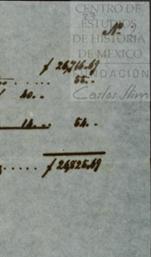 CENTRO DE
ESTUDIOS
DE HISTORIA
DE MEXICO
FUNDACIÓN
Carlos Slim
Nº
f 24,716.49
55..
40..
14.. 54..
f 24,825.49